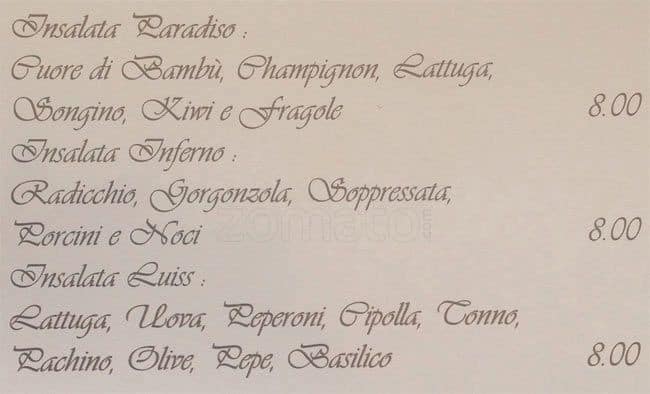 Insalata Paradiso :
Cuore di Bambù, Champignon, Lattuga,
Songino, Kiwi e Fragole 8.00
Insalata Inferno :
Radicchio, Gorgonzola, Soppressata,
zomato.com
Porcini e Noci 8.00
Insalata Luiss :
Lattuga, Uova, Peperoni, Cipolla, Tonno,
Pachino, Olive, Pepe, Basilico 8.00